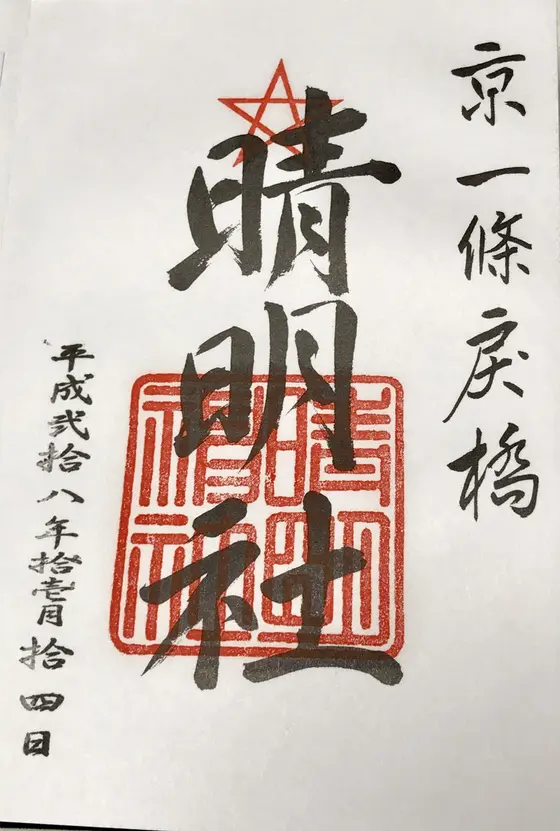 京一條戻橋
晴明社
晴明
神社
平成弐拾八年拾壱月拾四日